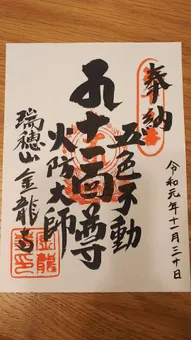 奉納
令和元年十一月三十日
五色不動
尊
火防大師
瑞穂山 金龍寺